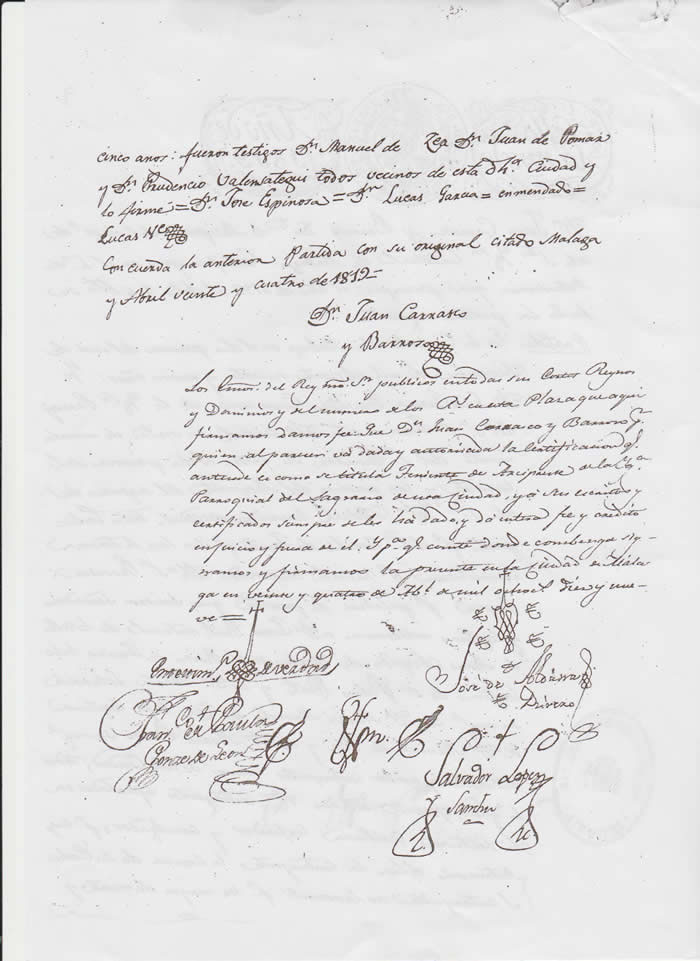 cinco anos: fueron testigos Dn. Manuel de Zea Dn. Juan de Pomar
y Dn. Prudencio Valensategui todos vecinos de esta dha. Ciudad y
lo firme = Dr. Jose Espinosa = Dn. Lucas Garcia = enmendado =
Lucas Ve
Concuerda la anterior Partida con su original citado Malaga
y Abril veinte y cuatro de 1819
Dn. Juan Carrasco
y Barroso
Los Emos. del Rey nro. Sr. publicos en todas sus Cortes Reynos
y Dominios y del numero de los Rs. en esta Plaza que aqui
firmamos damos fee que Dn. Juan Carrasco y Barroso pr.
quien al parecer va dada y autorizada la Certificacion qe.
antecede es como se titula Teniente de Arcipreste de la Yga.
Parroquial del Sagrario de esta Ciudad, y á sus escritos y
certificados siempre se les há dado, y dá entera fee y credito
en juicio y fuera de el. Y pa. qe. conste donde combenga sig-
namos y firmamos la presente en la ciudad de Mala-
ga en veinte y quatro de Abl. de mil ochocs. diez y nue-
ve
En testim. de verdad
José de Aldana
Rivero
Fran. Co. de Paula
Gonzalez Leon
Salvador Lopez
Sanchez